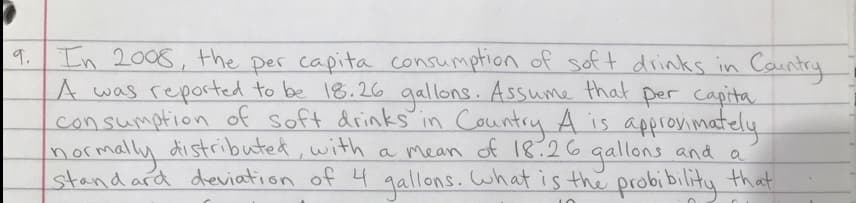 9. In 2008, the per capita consumption of soft drinks in Country
A was reported to be 18.26 gallons. Assume that per capita
consumption of soft drinks in Country A is approximately
normally distributed, with a mean of 18.26 gallons and a
standard deviation of 4 gallons. What is the probibility that